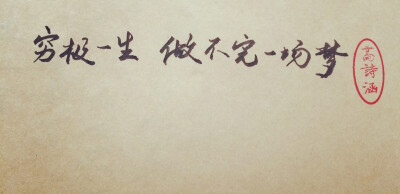 穷极一生 做不完一场梦
高詩涵